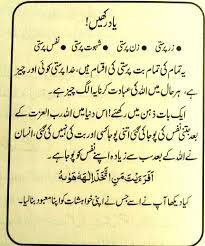 یاد رکھیں!
• زر پرستی • زن پرستی • شہوت پرستی • نفس پرستی
یہ تمام کی تمام بت پرستی کی اقسام ہیں، خدا پرستی کوئی اور چیز
ہے، ہر حال میں اللہ کی عبادت کرنا یہ الگ چیز ہے۔
ایک بات ذہن میں رکھئے! اس دنیا میں اللہ رب العزت کے
بعد جتنی نفس کی پوجا کی گئی اتنی پوجا کسی اور بت کی نہیں کی گئی،
انسان نے اللہ کے بعد سب سے زیادہ اپنے نفس کو پوجا ہے۔
اَفَرَءَيْتَ مَنِ اتَّخَذَ اِلٰهَهٗ هَوٰىهُ
کیا دیکھا آپ نے اسے جس نے اپنی خواہشات کو اپنا معبود بنا لیا۔